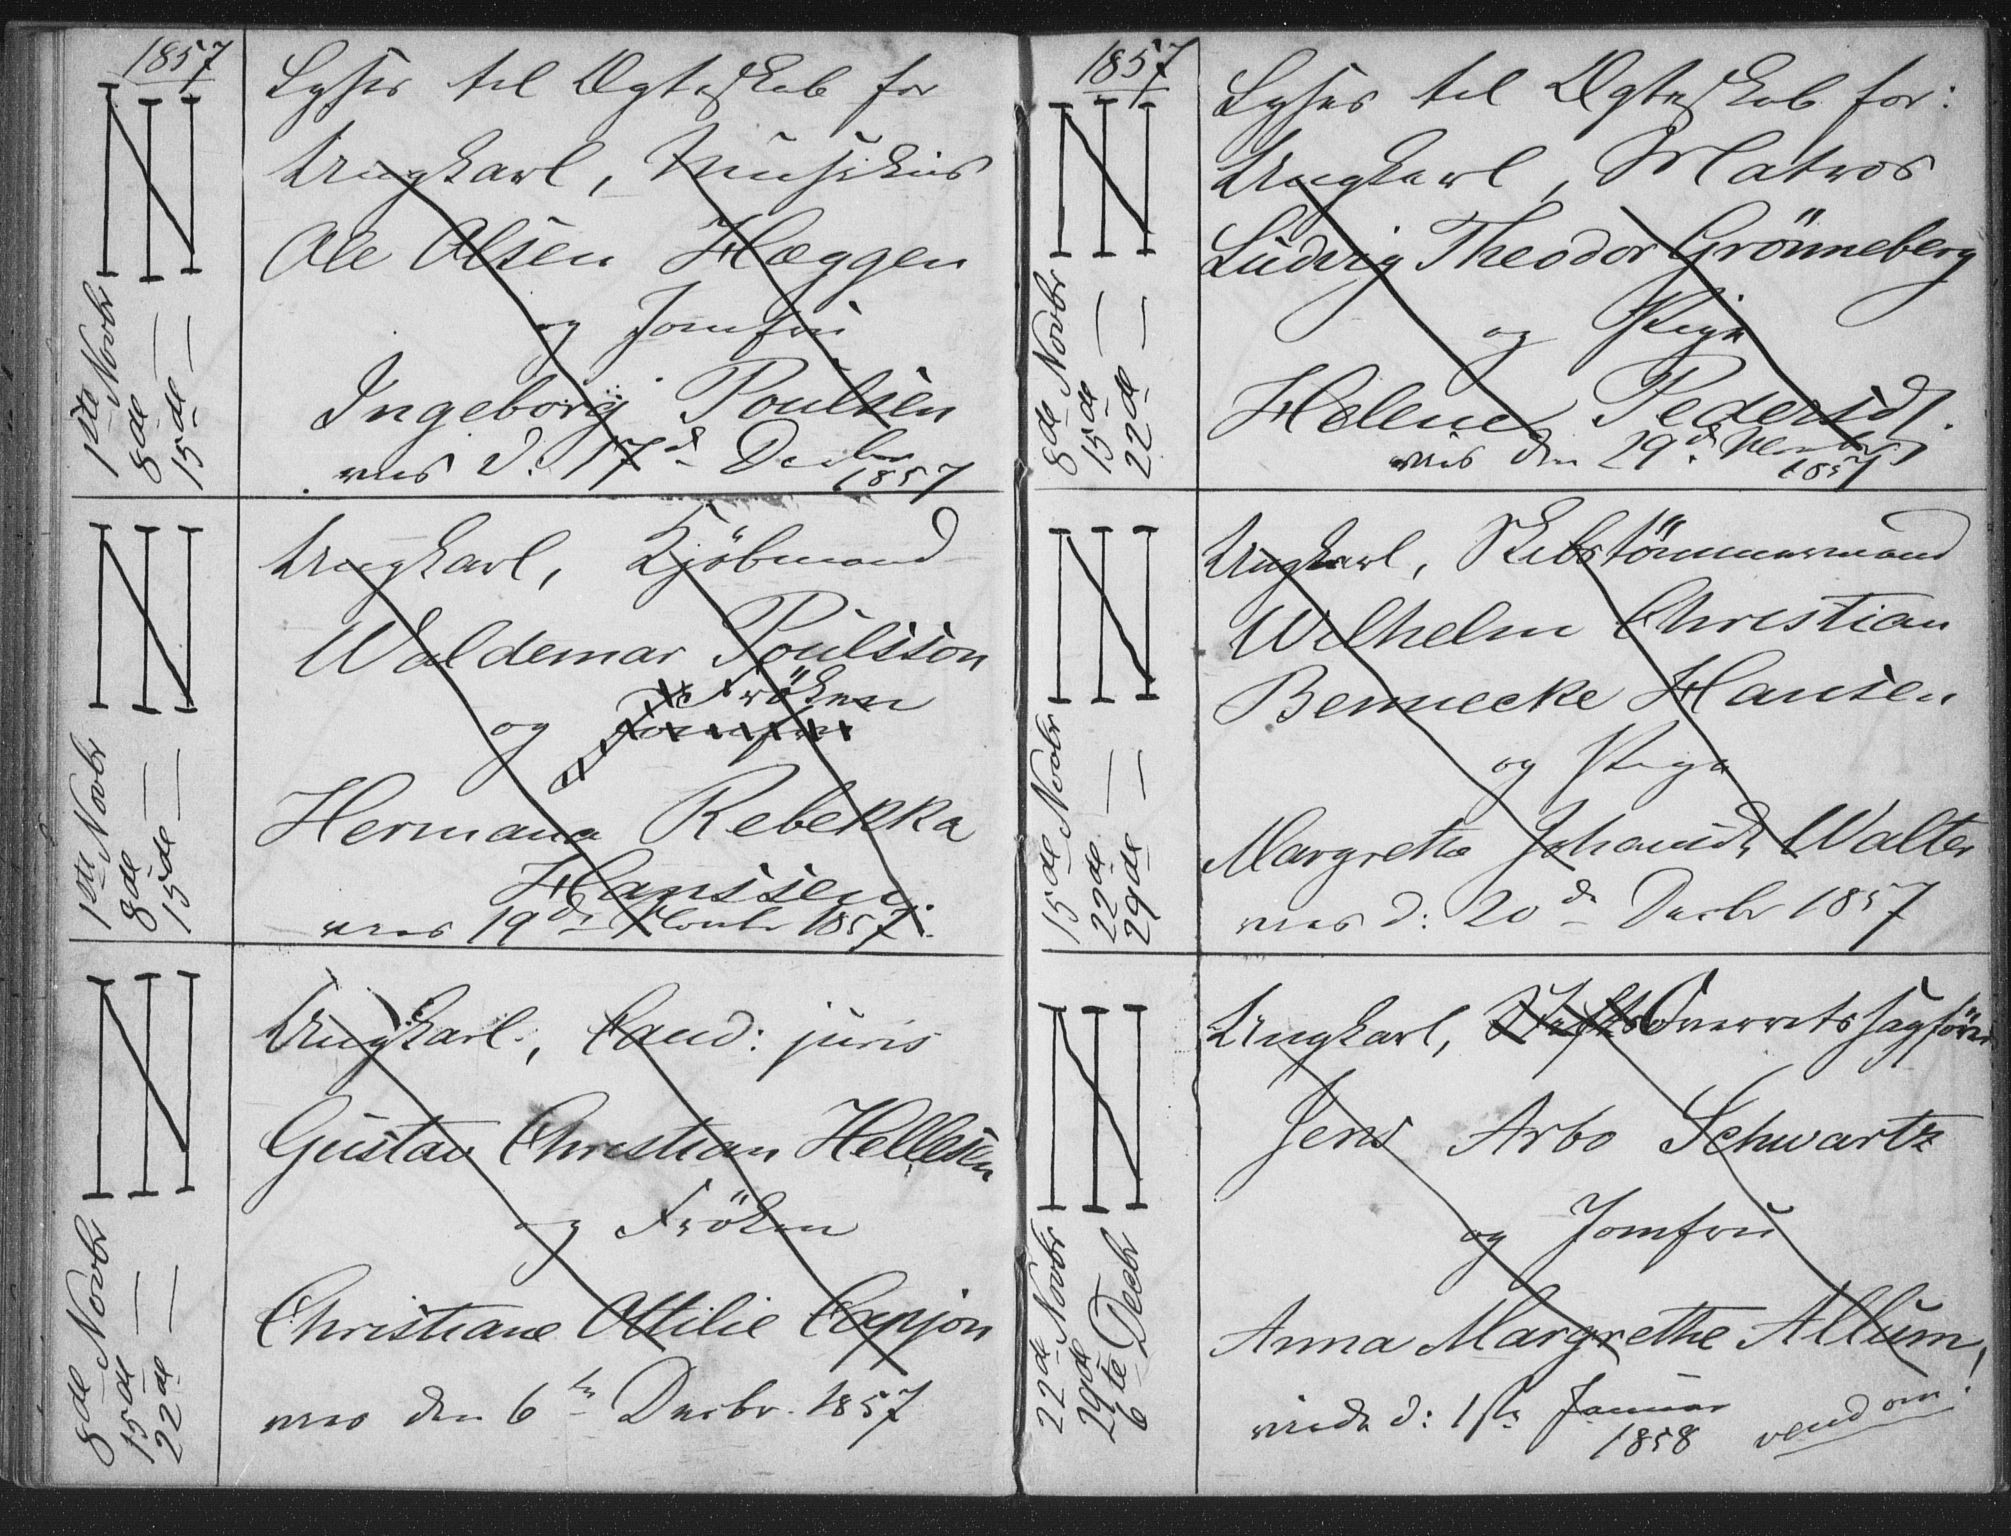 1857
Lyses til Ægteskab for
Ungkarl, Musikus
Ole Olsen Hæggen
og Jomfru
Ingeborg Poulsen
viet d. 17de Decbr
1857
1ste Novbr
8de —
15de —
Ungkarl, Kjöbmand
Waldemar Poulsson
Fröken
og Jomfru
Hermana Rebekka
Hanssen.
viet 19de Novbr 1857.
1ste Novbr
8de —
15de —
Ungkarl, Cand: juris
Gustav Christian Hellesen
og Fröken
Christiane Ottilie Coxjon
viet den 6te Decbr. 1857
8de Novbr
15de —
22de —
1857
Lyses til Ægteskab for:
Ungkarl, Matros
Ludvig Theodor Grönneberg
og Pige
Helene Pedersdr.
viet den 29de Novbr
1857
8de Novbr
15de —
22de —
Ungkarl, Skibstömmermand
Wilhelm Christian
Bennecke Hansen
og Pige
Margrethe Johannesdr Walter
viet d: 20de Decbr 1857
15de Novbr
22de —
29de —
Ungkarl, Overretssagförer
Jens Arbo Schwartz
og Jomfru
Anna Margrethe Allum,
viede d: 1ste Januar
1858
vend om.
22de Novbr
29de
6te Decbr